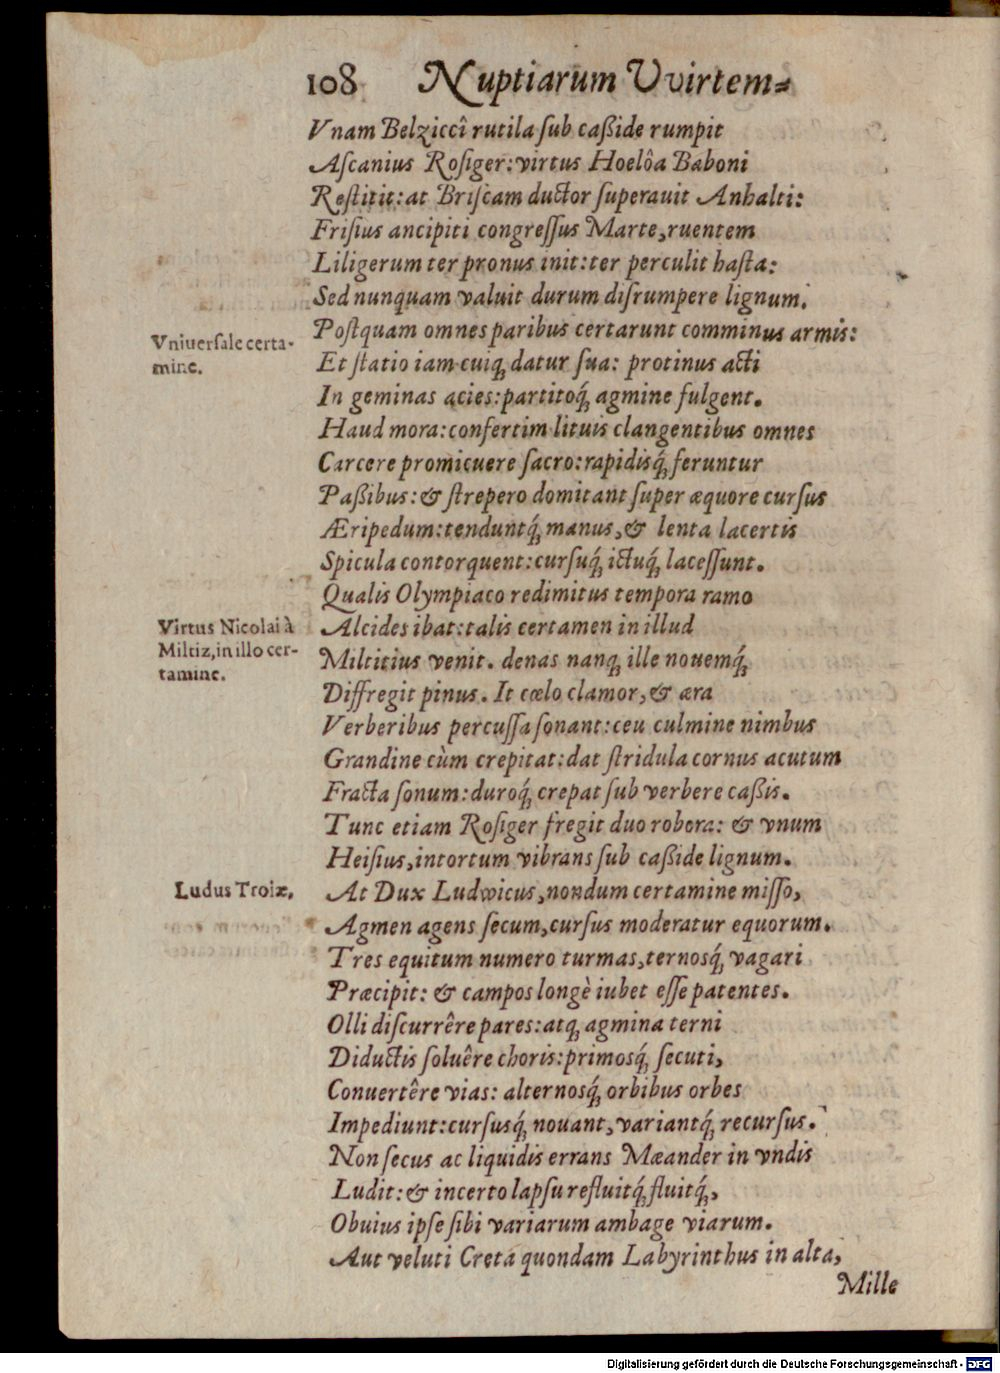 108 Nuptiarum Vvirtem⸗
Vnam Belziccî rutila ſub caßide rumpit
Aſcanius Roſiger: virtus Hoelôa Baboni
Reſtitit: at Briſcam ductor ſuperauit Anhalti:
Friſius ancipiti congreſſus Marte, ruentem
Liligerum ter pronus init: ter perculit haſta:
Sed nunquam valuit durum diſrumpere lignum.
Vniuerſale certa-
mine.
Poſtquam omnes paribus certarunt comminus armis:
Et ſtatio iam cuiq́; datur ſua: protinus acti
In geminas acies: partitoq́; agmine fulgent.
Haud mora: confertim lituis clangentibus omnes
Carcere promicuere ſacro: rapidisq́; feruntur
Paßibus: & ſtrepero domitant ſuper æquore curſus
Æripedum: tenduntq́; manus, & lenta lacertis
Spicula contorquent: curſuq́; ictuq́; laceſſunt.
Qualis Olympiaco redimitus tempora ramo
Virtus Nicolai à
Miltiz, in illo cer-
tamine.
Alcides ibat: talis certamen in illud
Miltitius venit. denas nanq; ille nouemq́;
Diffregit pinus. It cœlo clamor, & æra
Verberibus percuſſa ſonant: ceu culmine nimbus
Grandine cùm crepitat: dat ſtridula cornus acutum
Fracta ſonum: duroq́; crepat ſub verbere caßis.
Tunc etiam Roſiger fregit duo robora: & vnum
Heiſius, intortum vibrans ſub caßide lignum.
Ludus Troiæ.
At Dux Ludwicus, nondum certamine miſſo,
Agmen agens ſecum, curſus moderatur equorum.
Tres equitum numero turmas, ternosq́; vagari
Præcipit: & campos longè iubet eſſe patentes.
Olli diſcurrêre pares: atq; agmina terni
Diductis ſoluêre choris: primosq́; ſecuti,
Conuertêre vias: alternosq́; orbibus orbes
Impediunt: curſusq́; nouant, variantq́; recurſus.
Non ſecus ac liquidis errans Mæander in vndis
Ludit: & incerto lapſu refluitq́; fluitq́;,
Obuius ipſe ſibi variarum ambage viarum.
Aut veluti Creta quondam Labyrinthus in alta,
Mille
Digitalisierung gefördert durch die Deutsche Forschungsgemeinschaft - DFG